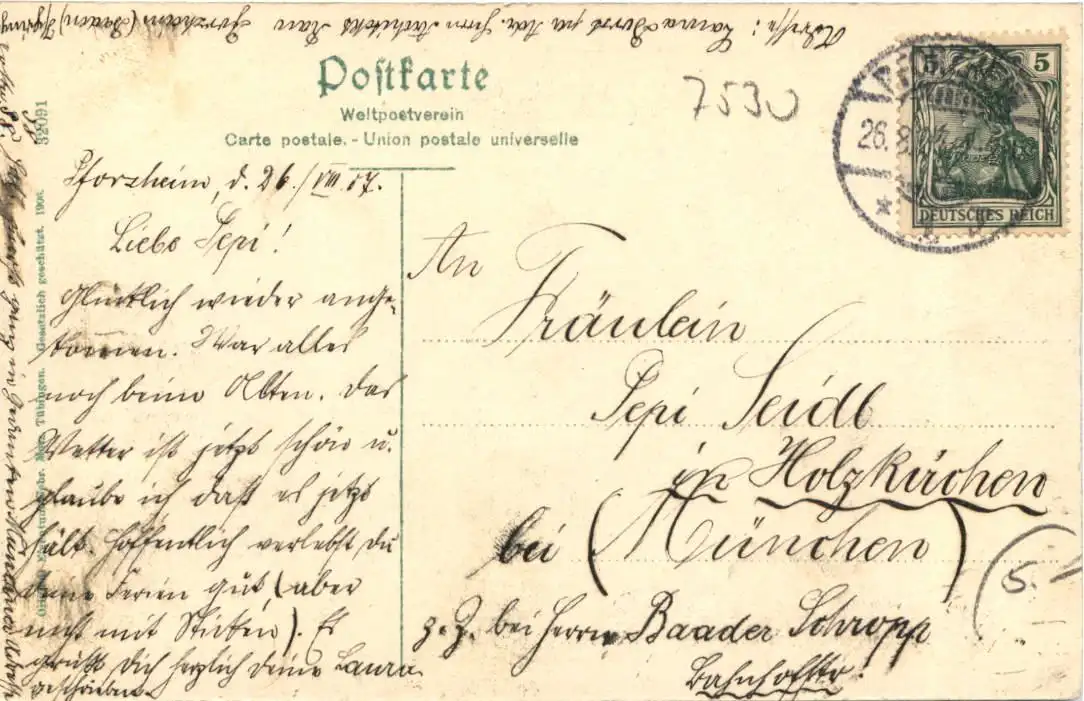 Adresse: Laura
Herrn Architekt Rau Pforzheim (Baden)
Postkarte
Weltpostverein
Carte postale. - Union postale universelle
7530
26.8.
5 5
DEUTSCHES REICH
32091
Gesetzlich geschützt. 1906.
Tübingen.
Pforzheim, d. 26./VIII 07.
Liebe Pepi!
Glücklich wieder ange-
kommen. War alles
noch beim Alten. Das
Wetter ist jetzt schön u.
glaube ich daß es jetzt
hält. Hoffentlich verlebst Du
Deine Ferien gut, (aber
nicht mit). Es
grüßt Dich herzlich Deine Laura
geschrieben.
An
Fräulein
Pepi Seidl
in Holzkirchen
bei (München)
z. Z. bei Herrn Baader Schropp
Bahnhofstr.
5.